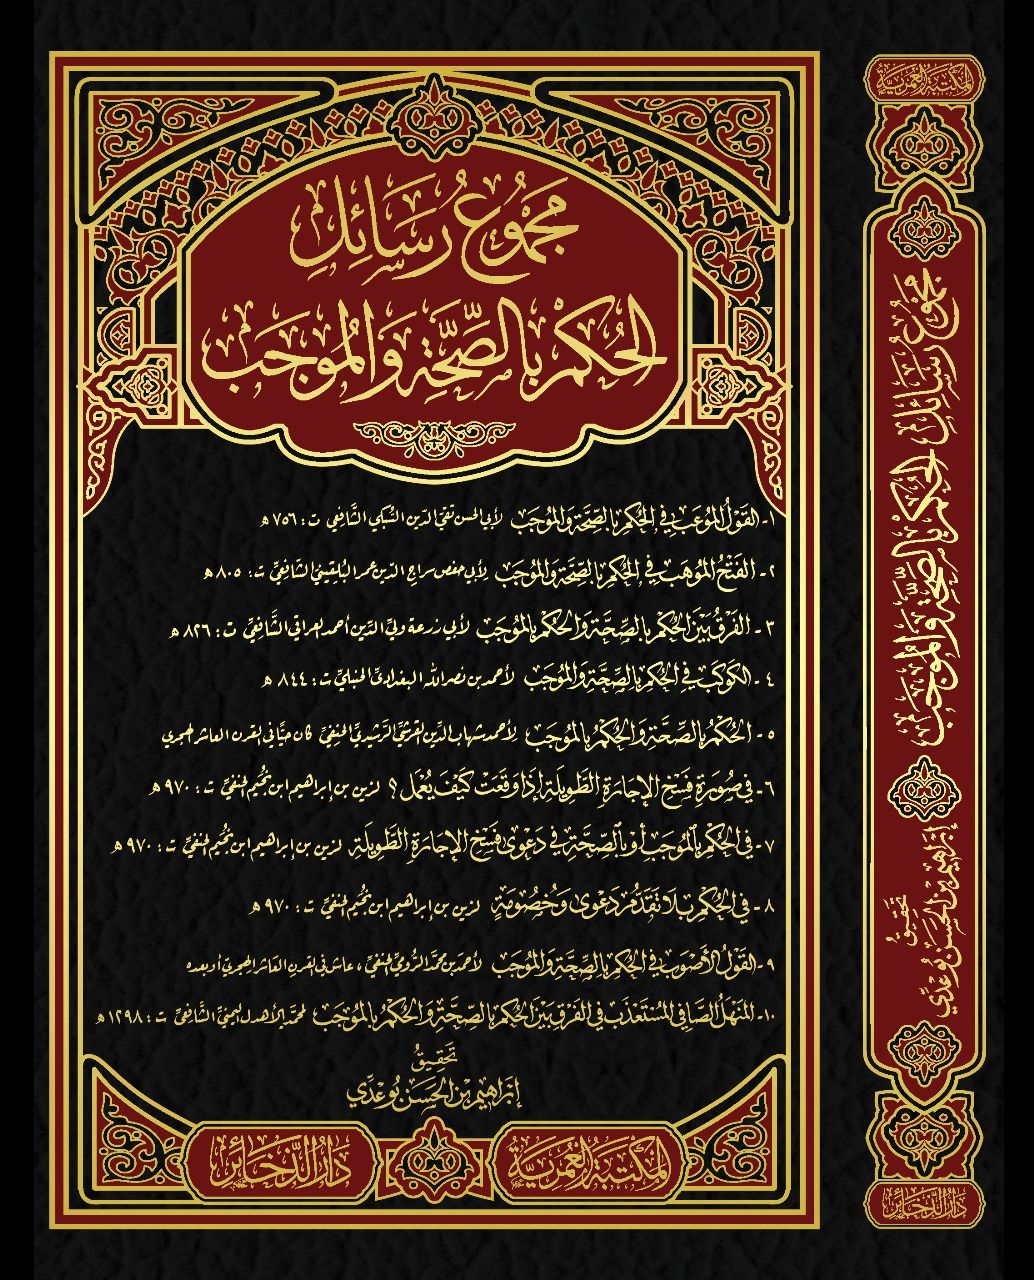 مجموع رسائل
الحكم بالصحة والموجب
١- القول الموعب في الحكم بالصحة والموجب لأبي الحسن تقي الدين السبكي الشافعي ت: ٧٥٦ هـ
٢- الفتح الموهب في الحكم بالصحة والموجب لأبي حفص سراج الدين عمر البلقيني الشافعي ت: ٨٠٥ هـ
٣- الفرق بين الحكم بالصحة والحكم بالموجب لأبي زرعة ولي الدين أحمد العراقي الشافعي ت: ٨٢٦ هـ
٤- الكوكب في الحكم بالصحة والموجب لأحمد بن نصر الله البغدادي الحنبلي ت: ٨٤٤ هـ
٥- الحكم بالصحة والحكم بالموجب لأحمد شهاب الدين القرشي الرشيدي الحنفي كان حيًّا في القرن العاشر الهجري
٦- في صورة فسخ الإجارة الطويلة إذا وقعت كيف يُعمل؟ لزين بن إبراهيم ابن نجيم الحنفي ت: ٩٧٠ هـ
٧- في الحكم بالموجب أو بالصحة في دعوى فسخ الإجارة الطويلة لزين بن إبراهيم ابن نجيم الحنفي ت: ٩٧٠ هـ
٨- في الحكم بلا تقدم دعوى وخصومة لزين بن إبراهيم ابن نجيم الحنفي ت: ٩٧٠ هـ
٩- القول الأصوب في الحكم بالصحة والموجب لأحمد بن محمد الرومي الحنفي، عاش في القرن العاشر الهجري أو بعده
١٠- المنهل الصافي المستعذب في الفرق بين الحكم بالصحة والحكم بالموجب لمحمد الأهدل اليمني الشافعي ت: ١٢٩٨ هـ
تحقيق
إبراهيم بن الحسن بوعدي
المكتبة العمرية
دار الذخائر
المكتبة العمرية
مجموع رسائل الحكم بالصحة والموجب
تحقيق
إبراهيم بن الحسن بوعدي
دار الذخائر